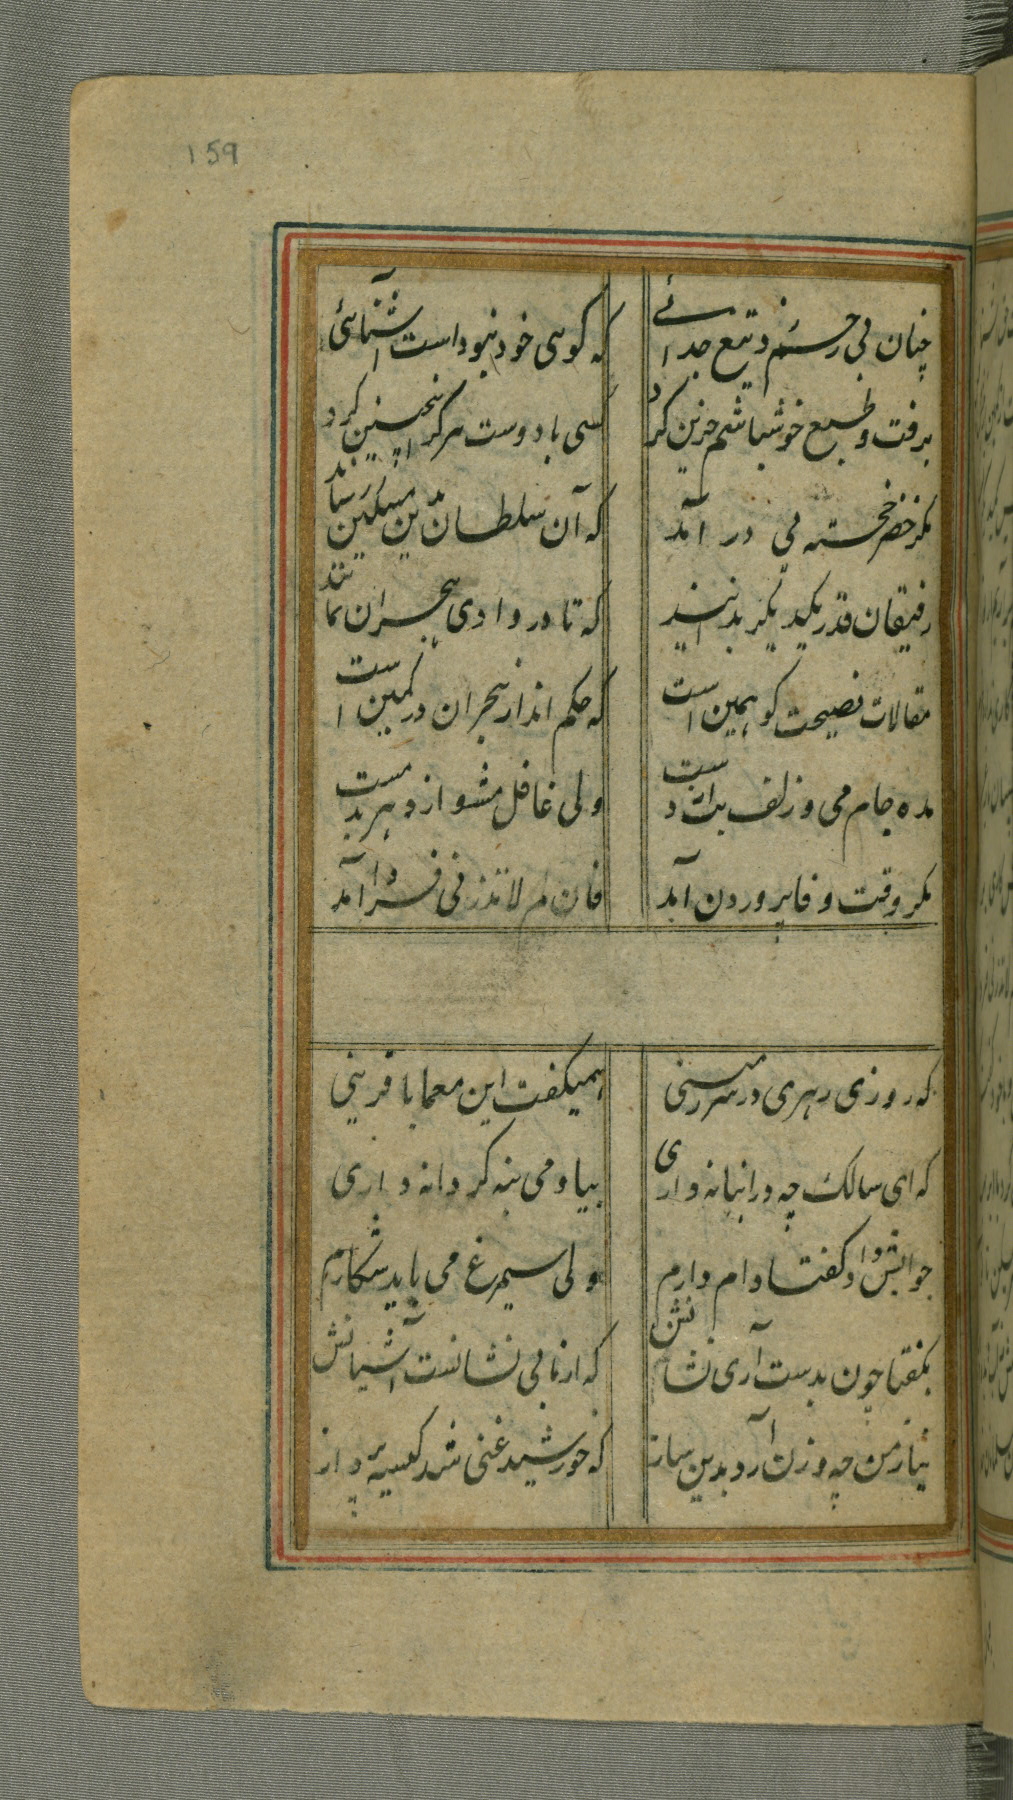 159
چنان بی رحم زد تیغ جدائی
که گوئی خود نبوداست آشنائی
برفت و طبع خوشباشم حزین کرد
کسی با دوست هرگز اینچنین کرد
مگر خضر خجسته پی در آمد
که آن سلطان بدین مسکین رساند
رفیقان قدر یکدیگر بدانید
که تا در وادی هجران نمانند
مقالات نصیحت کو همین است
که حکم انداز هجران در کمین است
مده جام می و زلف بت از دست
ولی غافل مشو از دهر بدمست
مگر وقت وفا پروردن آمد
فان لم لا تذرنی فردا آمد
که روزی رهروی در سرزمینی
همیگفت این معما با قرینی
که ای سالک چه در انبانه داری
بیا دامی بنه گر دانه داری
جوابش داد گفتا دام دارم
ولی سیمرغ می باید شکارم
بگفتا چون بدست آری نشانش
که از ما بی نشانست آشیانش
نیاز من چه وزن آرد بدین ساز
که خورشید غنی شد کیسه پرداز